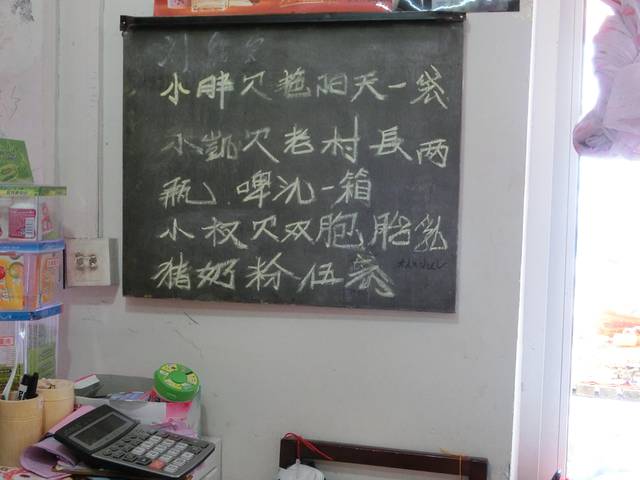 小胖欠艳阳天一袋
小凱欠老村長两
瓶、啤氿一箱
小权欠双胞胎乳
猪奶粉伍袋